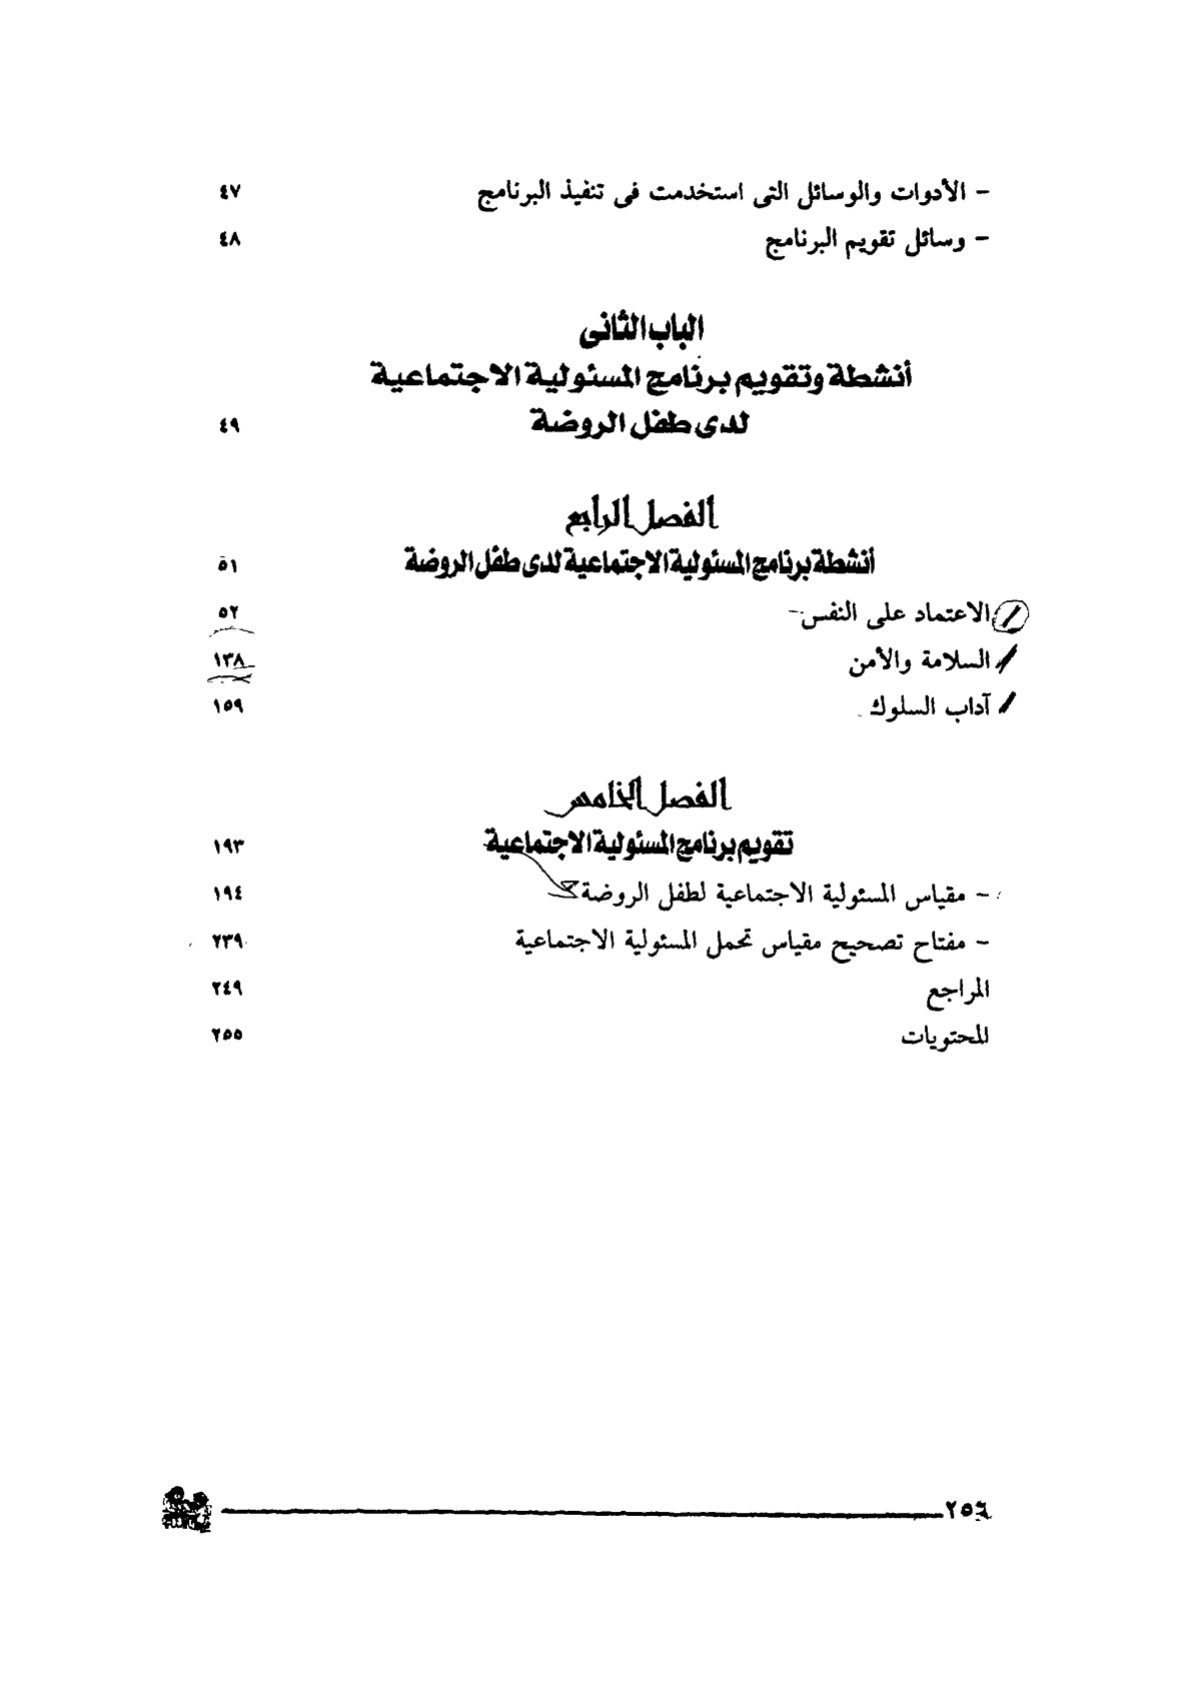 - الأدوات والوسائل التى استخدمت فى تنفيذ البرنامج ٤٧
- وسائل تقويم البرنامج ٤٨
الباب الثانى
أنشطة وتقويم برنامج المسئولية الاجتماعية
لدى طفل الروضة ٤٩
الفصل الرابع
أنشطة برنامج المسئولية الاجتماعية لدى طفل الروضة ٥١
الاعتماد على النفس ٥٢
السلامة والأمن ١٣٨
آداب السلوك ١٥٩
الفصل الخامس
تقويم برنامج المسئولية الاجتماعية ١٩٣
- مقياس المسئولية الاجتماعية لطفل الروضة ١٩٤
- مفتاح تصحيح مقياس تحمل المسئولية الاجتماعية ٢٣٩
المراجع ٢٤٩
المحتويات ٢٥٥
٢٥٦